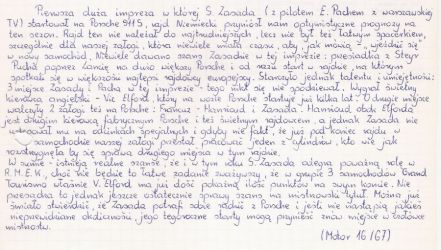 Pierwsza duża impreza w której S. Zasada (z pilotem E. Pachem z warszawskiej
TV) startował na Porsche 911 S, rajd Niemiecki przyniósł nam optymistyczne prognozy na
ten sezon. Rajd ten nie należał do najtrudniejszych, lecz nie był też łatwym spacerkiem,
szczególnie dla naszej załogi, która niewiele miała czasu, aby, jak mówią - wjeździć się
w nowy samochód. Niewiele dawano szans Zasadzie w tej imprezie; przesiadka z Steyr
Pucha poprzez Lancię na dwa większe Porsche i od razu start w rajdzie, na którym
spotkali się w większości najlepsi rajdowcy europejscy. Starczyło jednak talentu i umiejętności:
3 miejsce Zasady i Pacha w tej imprezie - tego nikt się nie spodziewał. Wygrał świetny
kierowca angielski - Vic Elford, który na wozie Porsche startuje już kilka lat. O drugie miejsce
walczyły 2 załogi też na Porsche: Hannaud i Zasada. Hannaud obok Elforda
jest drugim kierowcą fabrycznym Porsche i też świetnym rajdowcem, a jednak Zasada nie
ustępował mu na odcinkach specjalnych i gdyby nie fakt, że już pod koniec rajdu w
samochodzie naszej załogi przestał pracować jeden z cylindrów, kto wie jak
rozstrzygnęła by się sprawa drugiego miejsca w tym rajdzie.
W sumie istnieją realne szanse, że i w tym roku S. Zasada odegra poważną rolę w
R.M.E.K., choć nie będzie to łatwe zadanie zważywszy, że w grupie 3 samochodów Grand
Tourismo właśnie V. Elford ma już dość pokaźną ilość punktów na swym koncie. Nie
przesądza to jednak jeszcze ostatecznie sprawy szans na mistrzowski tytuł. Można już
śmiało stwierdzić, że Zasada potrafi sobie radzić z Porsche i jeśli nie zaistnieją jakieś
nieprzewidziane okoliczności, jego tegoroczne starty mogą przynieść znów miejsce w czołówce
mistrzostw.
(Motor 16/67)